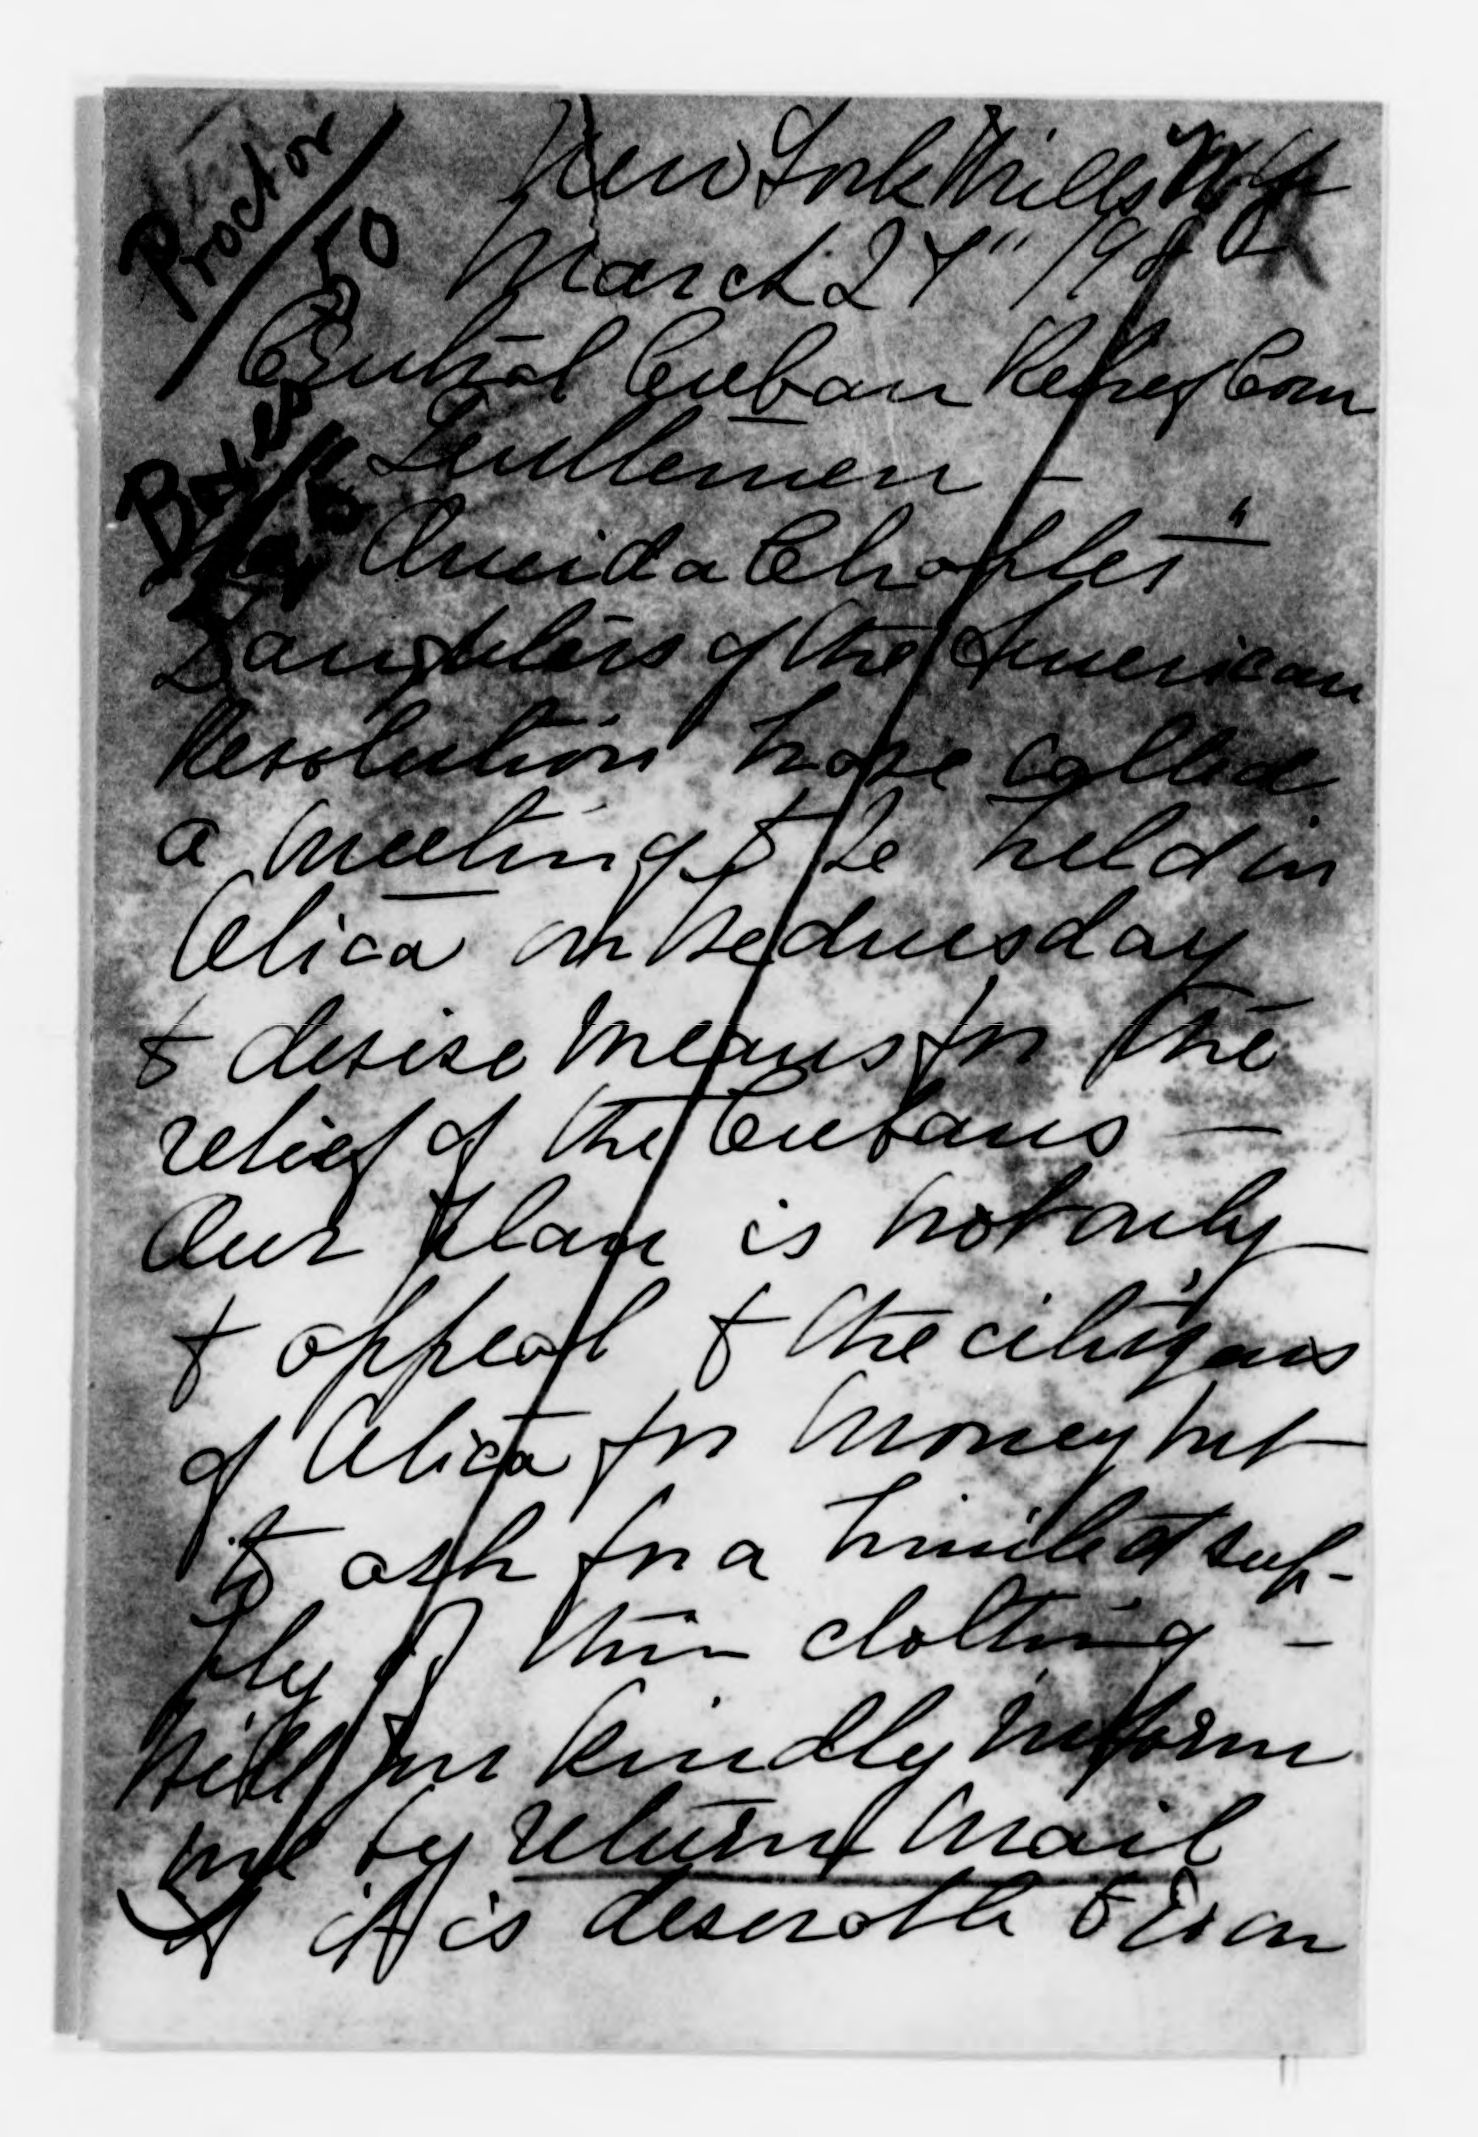 Proctor
50
Boxes
New York Mills N.Y.
March 27"
Central Cuban Relief Com
Gentlemen -
Oneida Chapter"
Daughters of the American
Revolution have called
a meeting to be held in
Utica on Wednesday
to devise means for the
relief of the Cubans -
Our plan is not only
to appeal to the citizens
of Utica for money but
to ask for a limited sup-
ply of thin clothing -
Will you kindly inform
me by return mail
if it is desirable to